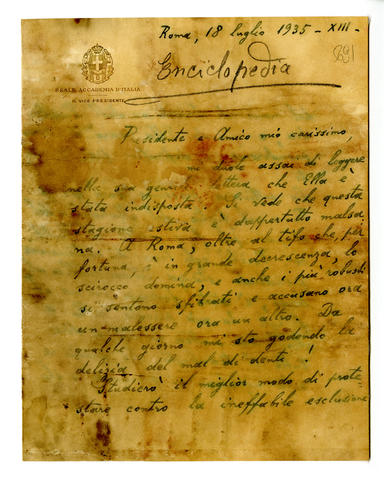 Roma, 18 luglio 1935 - XIII -
Enciclopedia
REALE ACCADEMIA D'ITALIA
IL VICE PRESIDENTE
Presidente e Amico mio carissimo,
mi duole assai di leggere
nella sua lettera che Ella è
stata indisposta. Si vede che questa
stagione estiva è dappertutto malsa
na. A Roma, oltre al tifo che, per
fortuna, è in grande decrescenza, lo
scirocco domina, e anche i più robusti
si sentono sfibrati e accusano ora
un malessere ora un altro. Da
qualche giorno mi sto godendo la
delizia del mal di denti!
Studierò il miglior modo di prote
stare contro la ineffabile esclusione